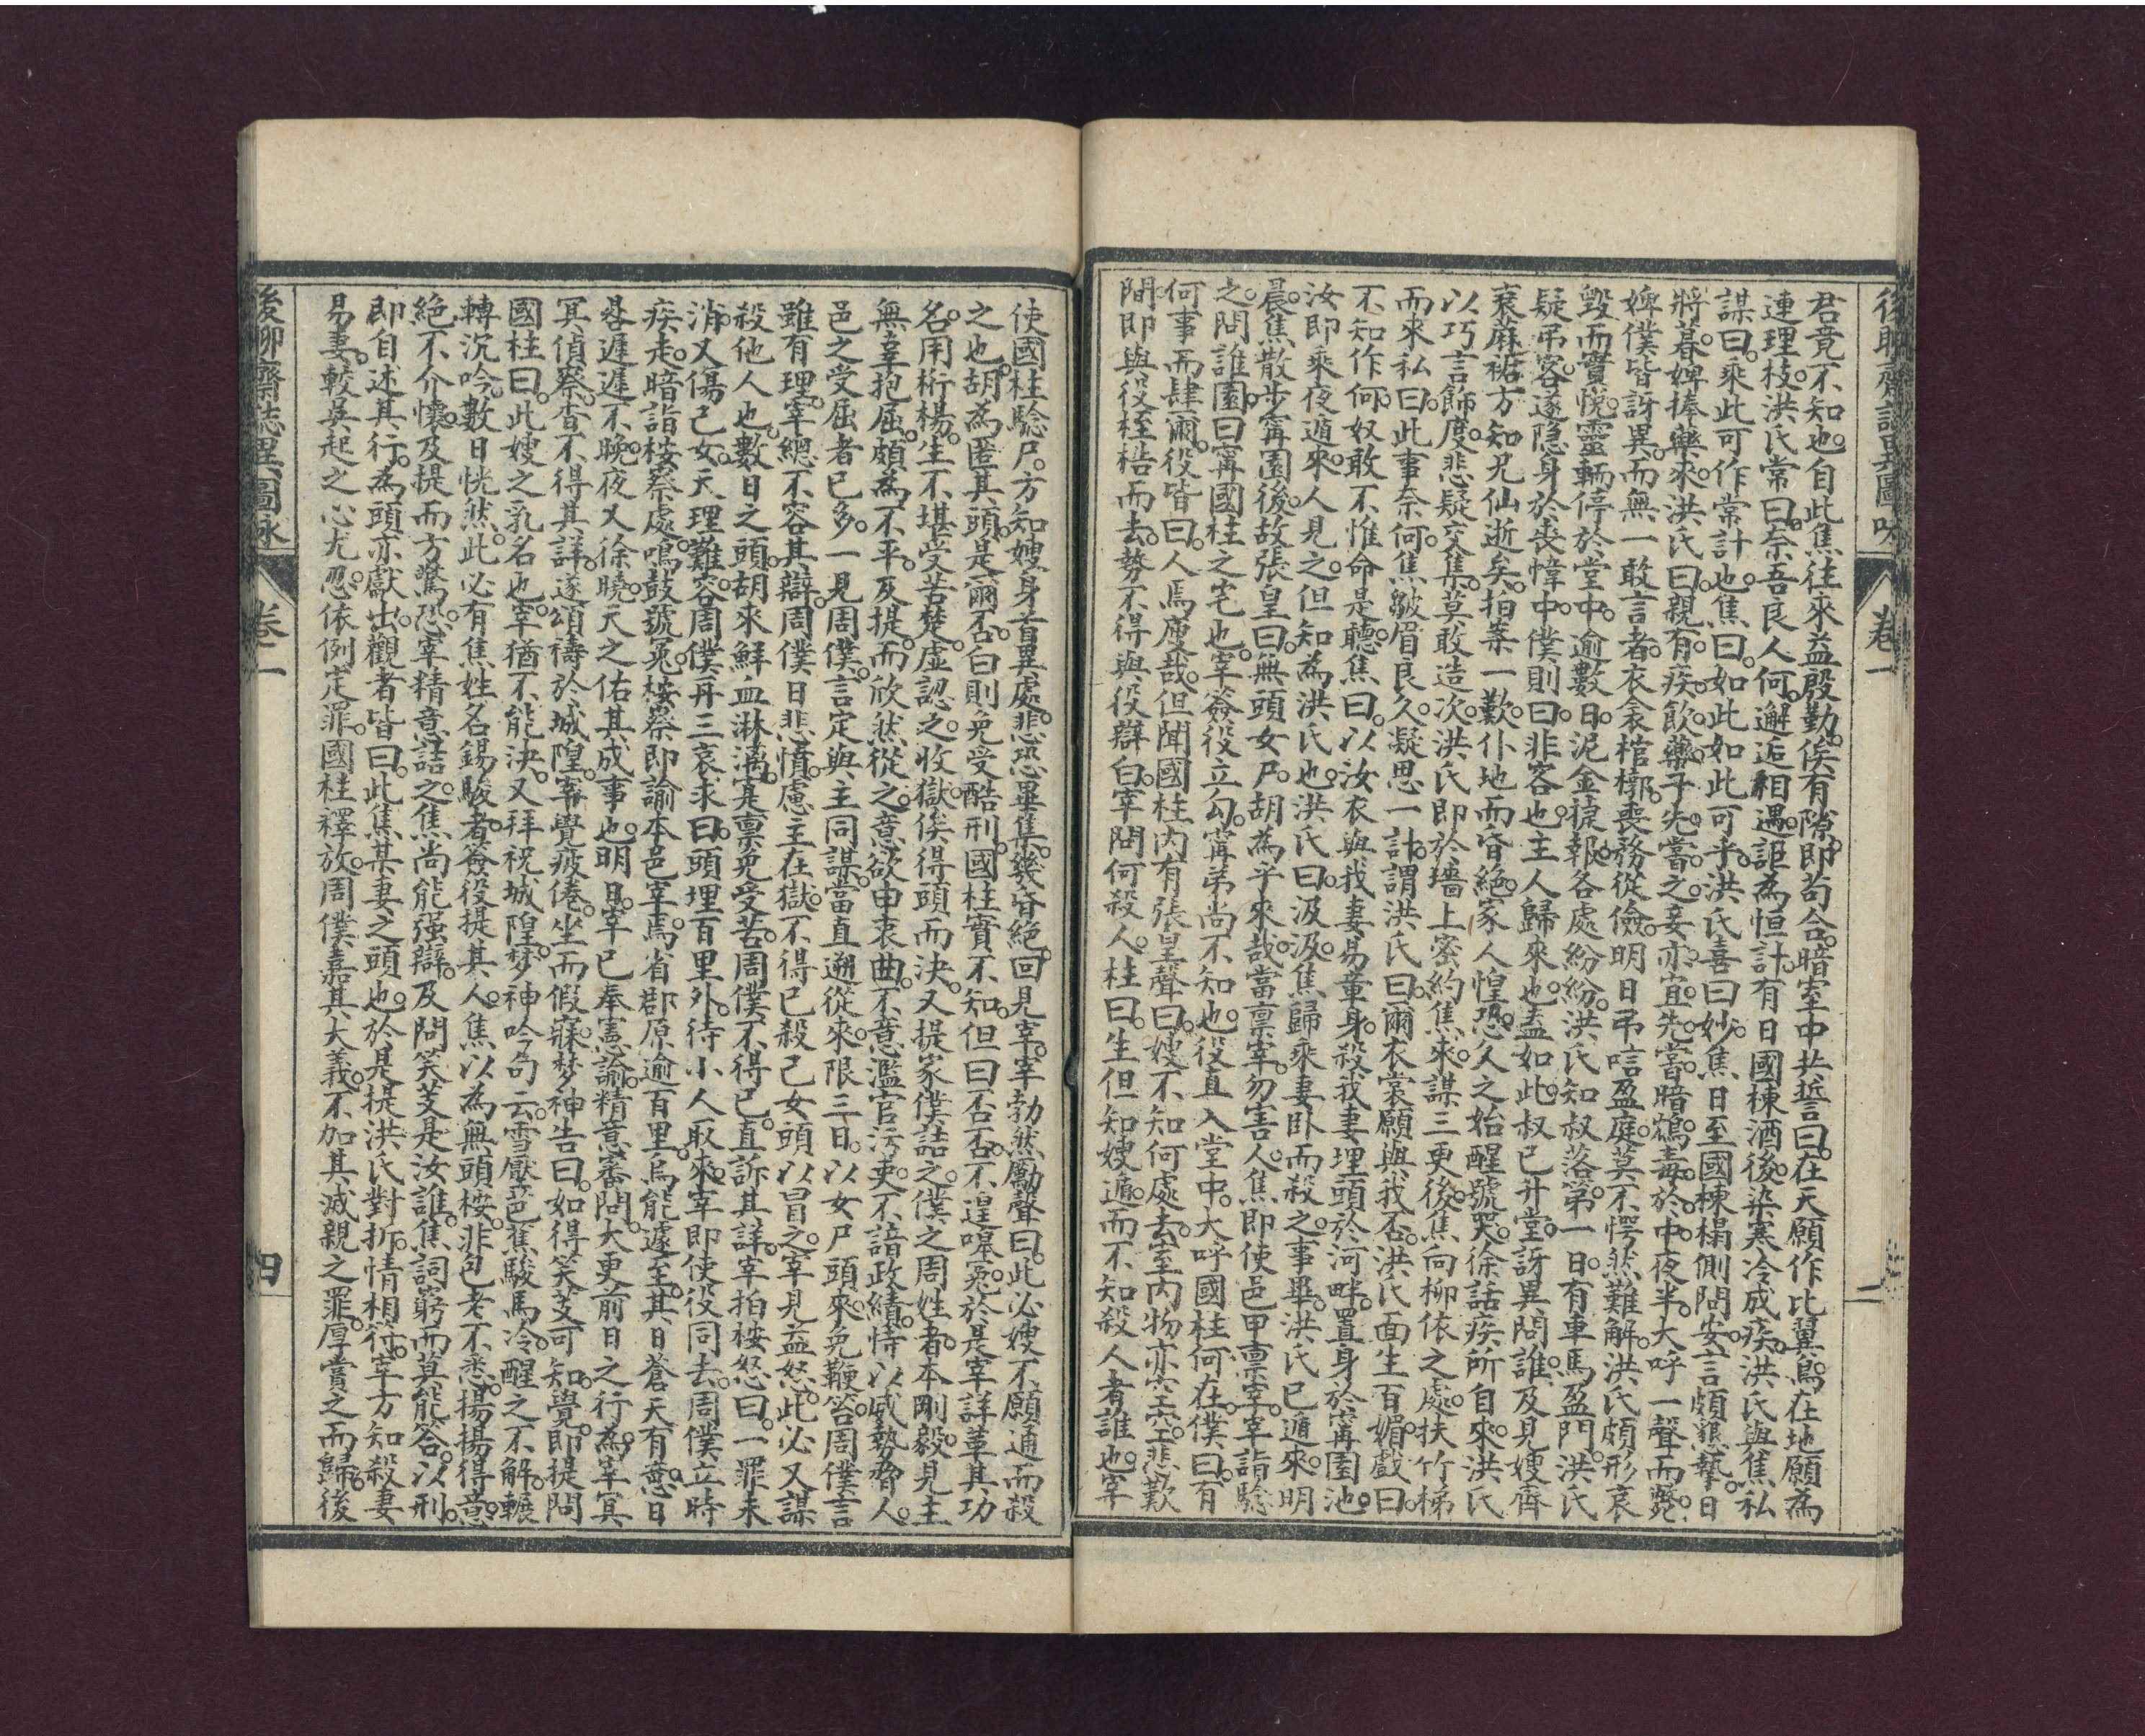 後聊齋誌異圖咏 卷一
君竟不知也。自此焦往來益殷勤。俟有隙。即苟合。暗室中共誓曰。在天願作比翼鳥。在地願為
連理枝。洪氏常曰。奈吾良人何。邂逅相遇。詎為恒計。有日國棟酒後。染寒冷成疾。洪氏與焦私
謀曰。乘此可作常計也。焦曰。如此如此可乎。洪氏喜曰妙。焦日至國棟榻側問安。言頗懇摯。日
將暮。婢捧藥來。洪氏曰。親有疾。飲藥。子先嘗之。妾亦宜先嘗。暗鴆毒於中。夜半。大呼一聲而斃。
婢僕皆訝異。而無一敢言者。衣衾棺槨。喪務從儉。明日弔唁盈庭。莫不愕然難解。洪氏頗形哀
毀。而實悅。靈輀停於堂中。逾數日。泥金捷報。各處紛紛。洪氏知叔落第一日。有車馬盈門。洪氏
疑弔客。遂隐身於喪幃中。僕則曰。非客也。主人歸來也。蓋如此。叔已升堂。訝異問誰。及見嫂齊
衰蔴裙。方知兄仙逝矣。拍案一歎。仆地而昏絕。家人惶恐。久之始醒。號哭。徐話疾所自來。洪氏
以巧言飾度。悲疑交集。莫敢造次。洪氏即於墻上密約焦來。謀三更後。焦向柳依之處。扶竹梯
而來。私曰。此事奈何。焦皺眉良久。凝思一計。謂洪氏曰。爾衣裳願與我否。洪氏面生百媚。戲曰。
不知作何。奴敢不惟命是聽。焦曰。以汝衣與我妻易着身。殺我妻埋頭於河畔。置身於甯園池。
汝即乘夜遁來。人見之。但知為洪氏也。洪氏曰。汲汲。焦歸乘妻臥而殺之。事畢。洪氏已遁來。明
晨。焦散步甯園後。故張皇曰。無頭女尸。胡為乎來哉。當禀宰。勿害人。焦即使邑甲禀宰。宰詣驗
之。問誰園。曰甯國柱之宅也。宰簽役立勾。甯弟尚不知也。役直入堂中。大呼國柱何在。僕曰。有
何事而肆爾。役皆曰。人焉廋哉。但聞國柱内有張皇聲曰。嫂不知何處去。室内物亦空空。悲歎
間。即與役桎梏而去。勢不得與役辯白。宰問何殺人。柱曰。生但知嫂遁。而不知殺人者誰也。宰
使國柱驗尸。方知嫂身首異處。悲恐畢集。幾昏絕。回見宰。宰勃然勵聲曰。此必嫂不願通而殺
之也。胡為匿其頭。是爾否。白則免受酷刑。國柱實不知。但曰否否。不遑嗥冤。於是宰詳革其功
名。用桁楊。生不堪受苦楚。虛認之。收獄。俟得頭而決。又提家僕詰之。僕之周姓者。本剛毅。見主
無辜抱屈。頗為不平。及提。而欣然從之。意欲申衷曲。不意濫官污吏。不諳政績。恃以威勢脅人。
邑之受屈者已多。一見周僕。言定與主同謀。當直遡從來。限三日。以女尸頭來。免鞭笞。周僕言
雖有理。宰總不容其辯。周僕日悲憤。慮主在獄。不得已殺己女頭以冒之。宰見益怒。此必又謀
殺他人也。數日之頭。胡來鮮血淋漓。寔禀免受苦。周僕不得已。直訴其詳。宰拍桉怒曰。一罪未
消。又傷己女。天理難容。周僕再三哀求曰。頭埋百里外。待小人取來。宰即使役同去。周僕立時
疾走。暗詣桉察處。鳴鼓號冤。桉察即諭本邑宰。焉省郡原逾百里。烏能遽至。其日蒼天有意。日
晷遲遲不晚。夜又徐曉。天之佑其成事也。明日。宰已奉憲諭。精意審問。大更前日之行為。宰冥
冥偵察。杳不得其詳。遂頌禱於城隍。宰覺疲倦。坐而假寐。梦神告曰。如得笑芟可知。覺。即提問
國柱曰。此嫂之乳名也。宰猶不能決。又拜祝城隍。梦神吟句云。雪壓芭蕉駿馬冷。醒之不解。輾
轉沉吟。數日恍然。此必有焦姓名錫駿者。簽役提其人。焦以為無頭桉。非包老不悉。揚揚得意。
絕不介懷。及提而方驚恐。宰精意詰之。焦尚能强辯。及問笑芟是汝誰。焦詞窮而莫能答。以刑。
即自述其行為。頭亦獻出。觀者皆曰。此焦某妻之頭也。於是提洪氏對折。情相符。宰方知殺妻
易妻。較吳起之心尤忍。依例定罪。國柱釋放。周僕嘉其大義。不加其滅親之罪。厚賞之而歸。後
後聊齋誌異圖咏 卷一 四